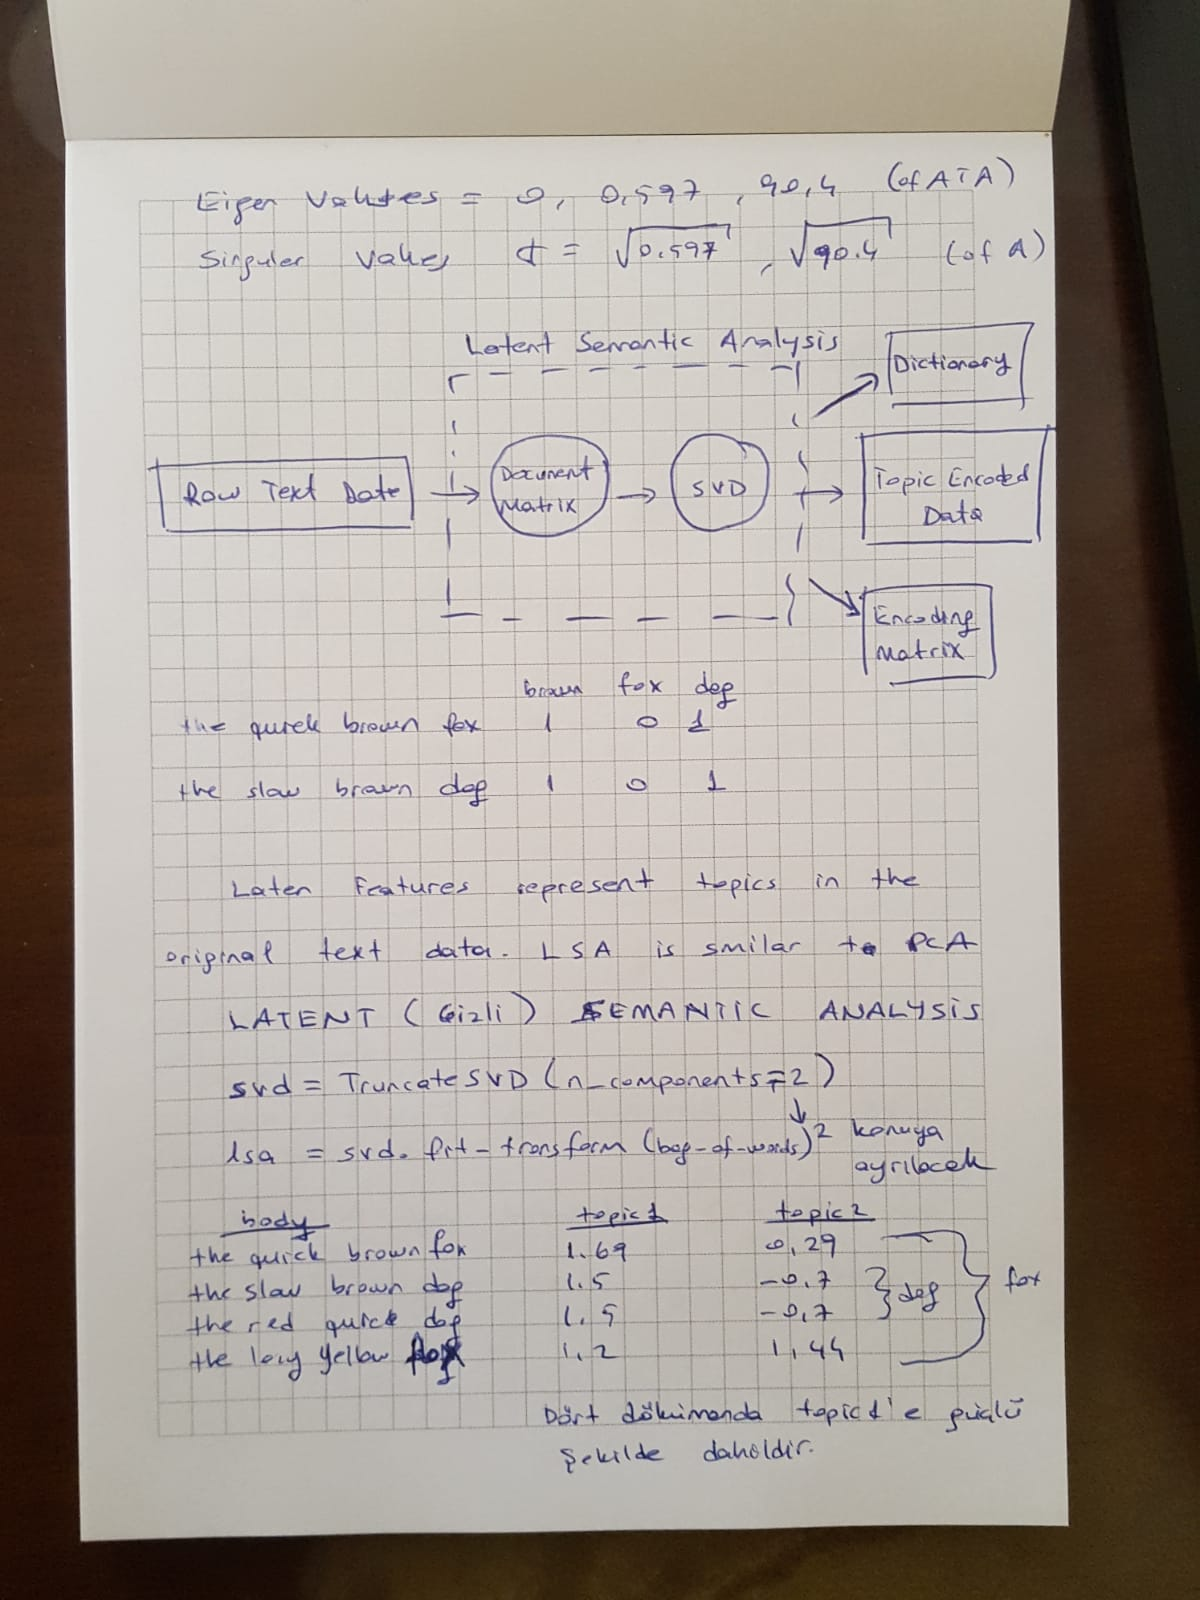 Eigen Values = 0, 0,597, 90,4 (of ATA)
Singuler Values σ = √0.597, √90.4 (of A)
Latent Semantic Analysis
Dictionary
Raw Text Data
Document Matrix
SVD
Topic Encoded Data
Encoding Matrix
brown fox dog
the quick brown fox 1 0 1
the slow brown dog 1 0 1
Laten Features represent topics in the
original text data. LSA is smilar to PCA
LATENT (Gizli) SEMANTIC ANALYSIS
svd = TruncateSVD (n_components=2)
lsa = svd. fit-transform (bag-of-words) 2 konuya
ayrılacak
body topic1 topic2
the quick brown fox 1.69 0,29
the slow brown dog 1.5 -0,7 } dog } fox
the red quick dog 1,5 -0,7
the lazy yellow 1,2 1,44
Dört dökümanda topic1'e güçlü
Şekilde dahildir.